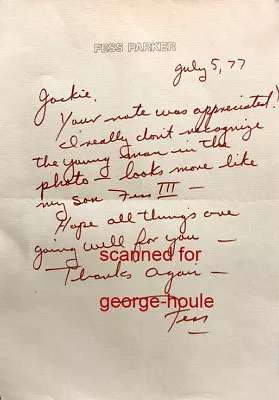 FESS PARKER
July 5, 77
Jackie,
Your note was appreciated!
I really don't recognize
the young man in the
photo - looks more like
my son Fess III -
Hope all things are
going well for you -
scanned for
Thanks again -
george-houle
Fess